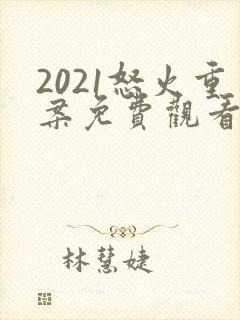 2021怒火重
案免費觀看
林慧婕